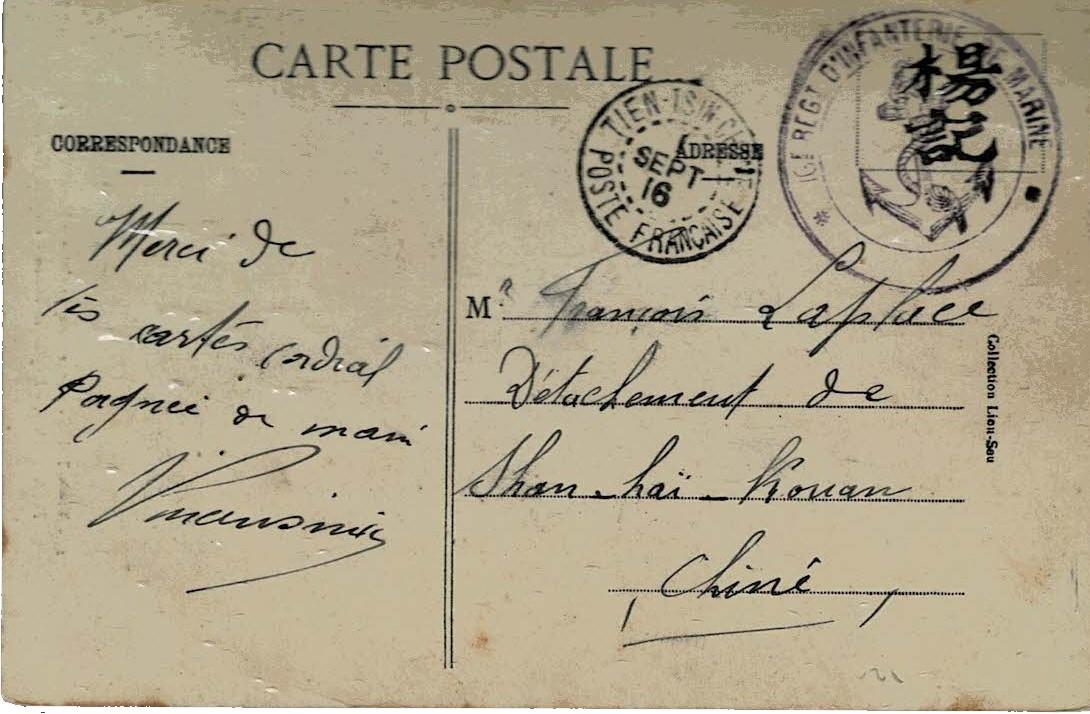 CARTE POSTALE
CORRESPONDANCE
ADRESSE
TIEN-TSIN CHINE
SEPT
16
POSTE FRANÇAISE
16E REGT D'INFANTERIE DE MARINE
楊
記
Merci de
tes cartes cordial
Pognée de main
Mr François Laplace
Détachement de
Shan-haï-Kouan
Chine
Collection Lieu-Seu